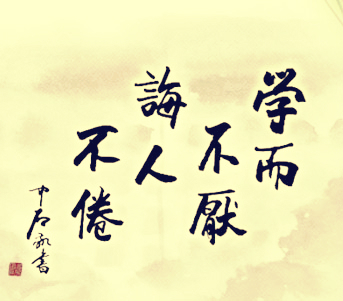 学而
不厭
誨人
不倦
中石敬書